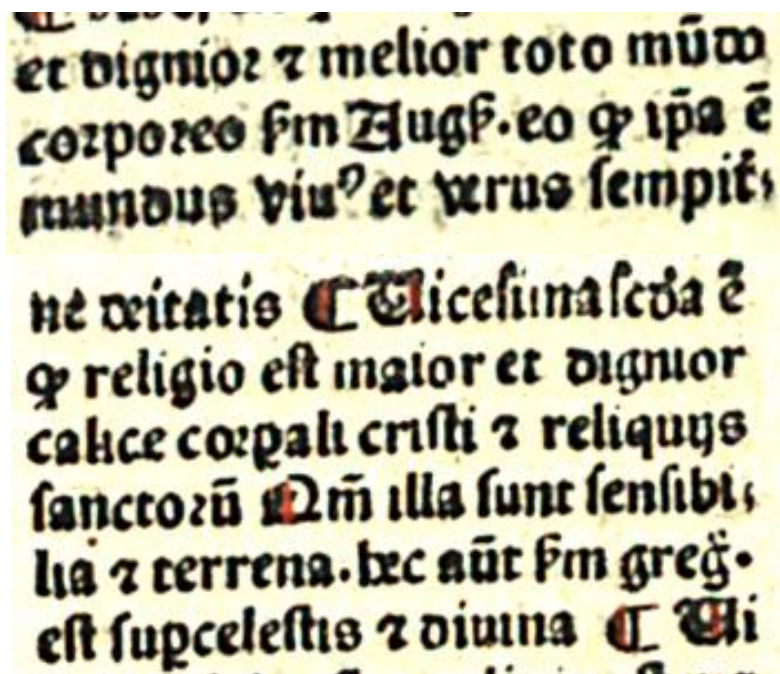 et dignior ⁊ melior toto mūdo
corporeo ẜm Augꝰ. eo ꝙ ip̄a ē
mundus viuꝰ et verus sempit̉⸗
ne deitatis ¶ Uicesima scd̓a ē
ꝙ religio est maior et dignior
calice corꝑali cristi ⁊ reliquijs
sanctorū Qm̄ illa sunt sensibi⸗
lia ⁊ terrena. hec aūt ẜm greg̉.
est suꝑcelestis ⁊ diuina ¶ Ui